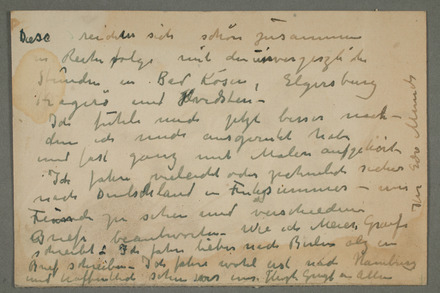 Diese reichten sich schön zusammen
in Reihenfolge mit den unvergeszliche
Stunden in Bad Kösen, Elgersburg
Kragerö und Hvidsten –
Ich fühle mich jetzt besser nach-
dem ich mich ausgeruht habe
und fast ganz mit Malen aufgehört
Ich fahre vielleicht oder ziemlich sicher
nach Deutschland im – um
zu sehen und verschiedene
Briefe beantworten – Wie ich
schreibt – Ich fahre lieber nach Berlin als ein
Brief schreiben – Ich fahre wohl erst nach Hamburg
und hoffentlich sehen wir uns.
Ihr Edv Munch